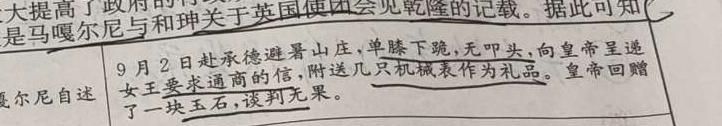 大提高了政府的行政
是马嘎尔尼与和珅关于英国使团会见乾隆的记载。据此可知(
9月2日赴承德避暑山庄,单膝下跪,无叩头,向皇帝呈递
女王要求通商的信,附送几只机械表作为礼品。皇帝回赠
嘎尔尼自述
了一块玉石,谈判无果。